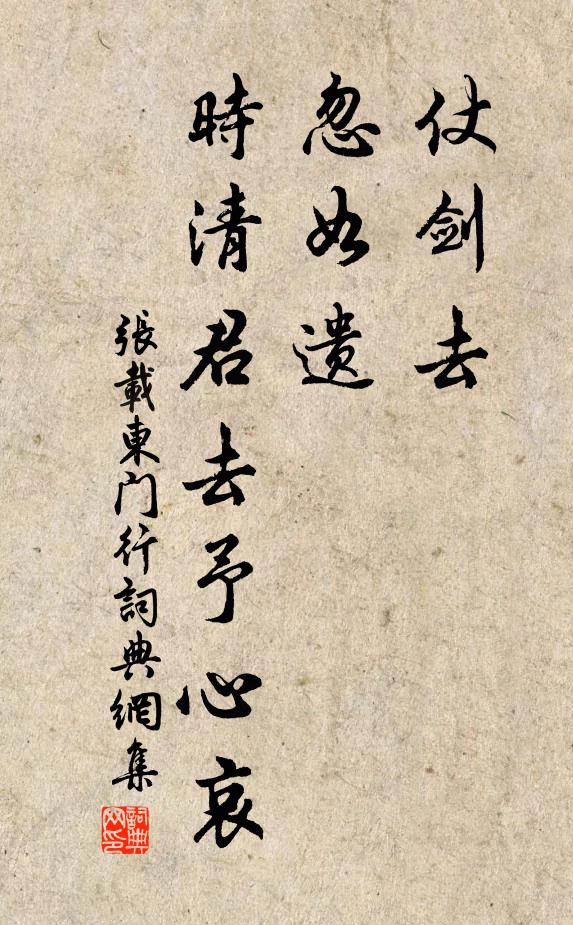 仗剑去
忽如遗
時清君去予心哀
張載東门行詞典網集
詞典网印